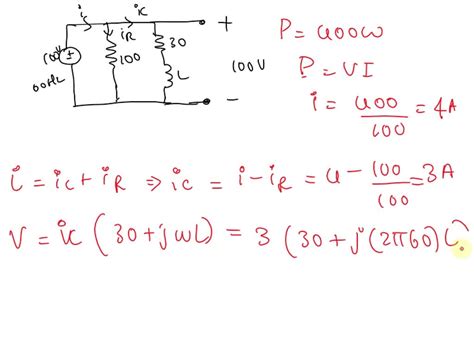 i̇c
ik
+
iR
30
100
L
100V
-
P = 400W
P = VI
i = 400/100 = 4A
i = ic + iR ⇒ ic = i - iR = 4 - 100/100 = 3A
V = ik (30 + jωL) = 3 (30 + j(2π60) L)